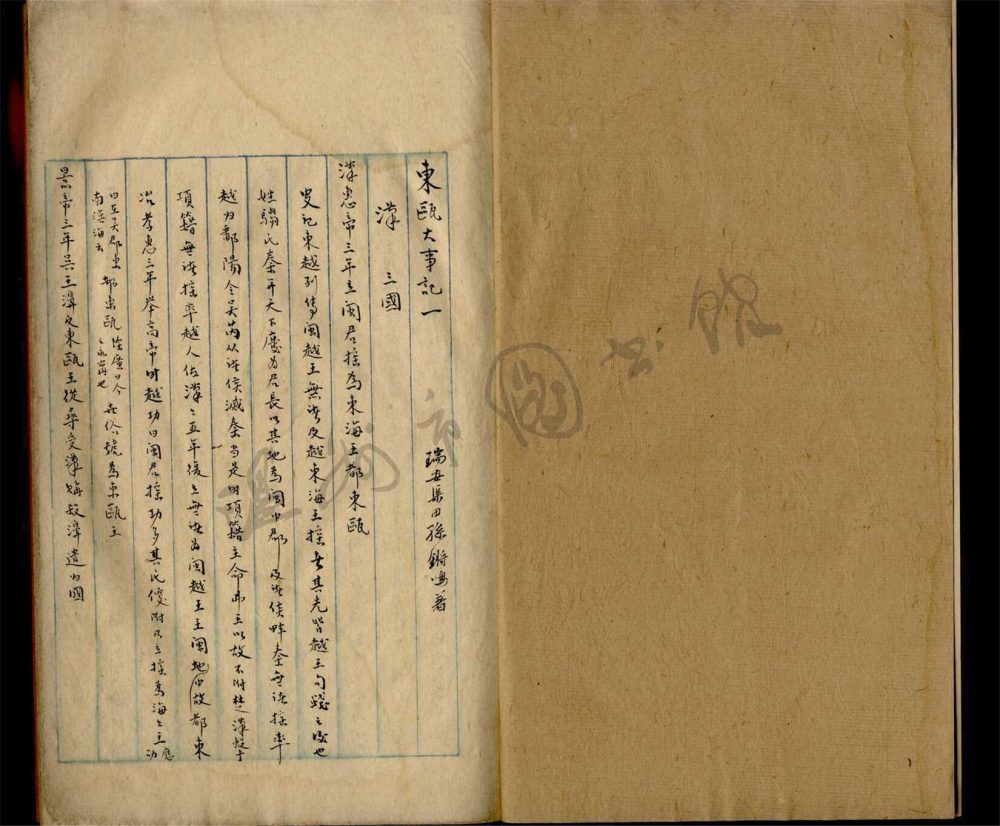 東甌大事記一
瑞安渠田孫鏘鳴著
漢　三國
漢惠帝三年立閩君搖為東海王都東甌
史記東越列傳閩越王無諸及越東海王搖者其先皆越王句踐之後也
姓騶氏秦并天下廢為君長以其地為閩中郡及諸侯畔秦無諸搖率
越歸鄱陽令吳芮從諸侯滅秦當是時項籍主命弗王以故不附楚漢擊
項籍無諸搖率越人佐漢漢五年復立無諸為閩越王王閩地中故都東
冶孝惠三年舉高帝時越功曰閩君搖功多其民便附乃立搖為海王應劭
曰在吳郡東南濱海云都東甌徐廣曰今之永甯也世俗號為東甌王
景帝三年吳王濞反東甌王從尋受漢購殺濞遣歸國
溫州市圖書館